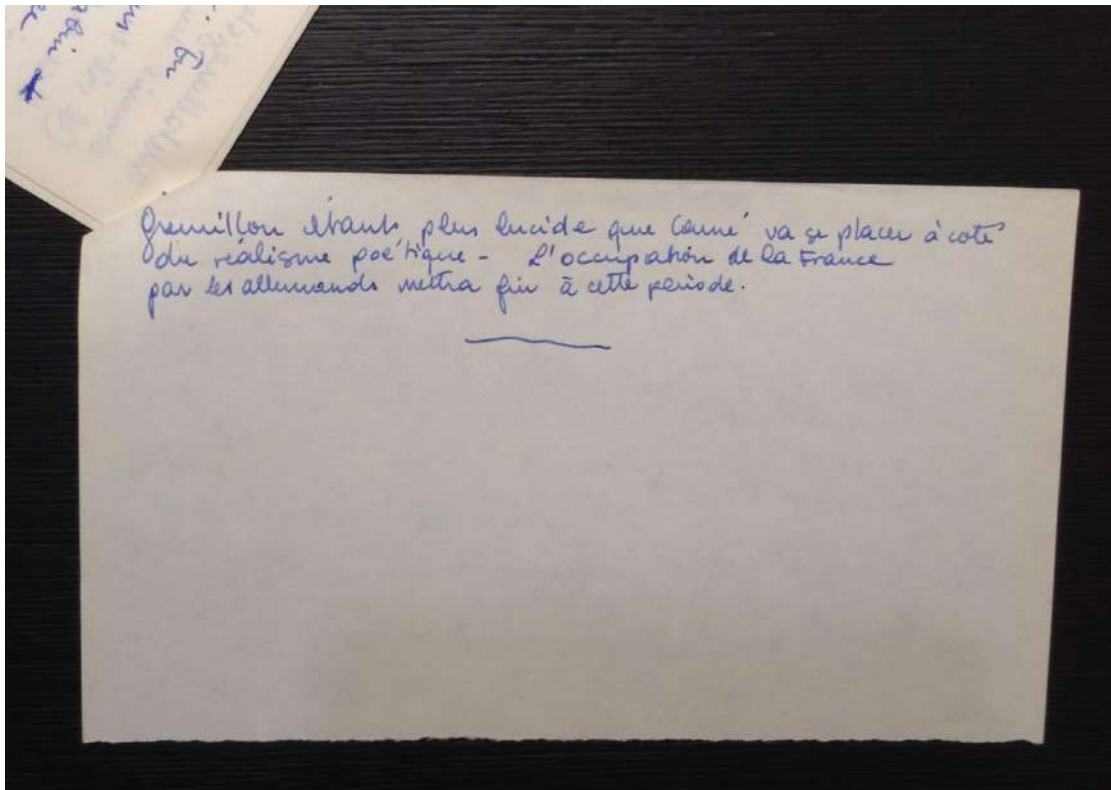 Gremillon étant plus lucide que Carné va se placer à coté
du réalisme poétique - L'occupation de la France
par les allemands mettra fin à cette periode.